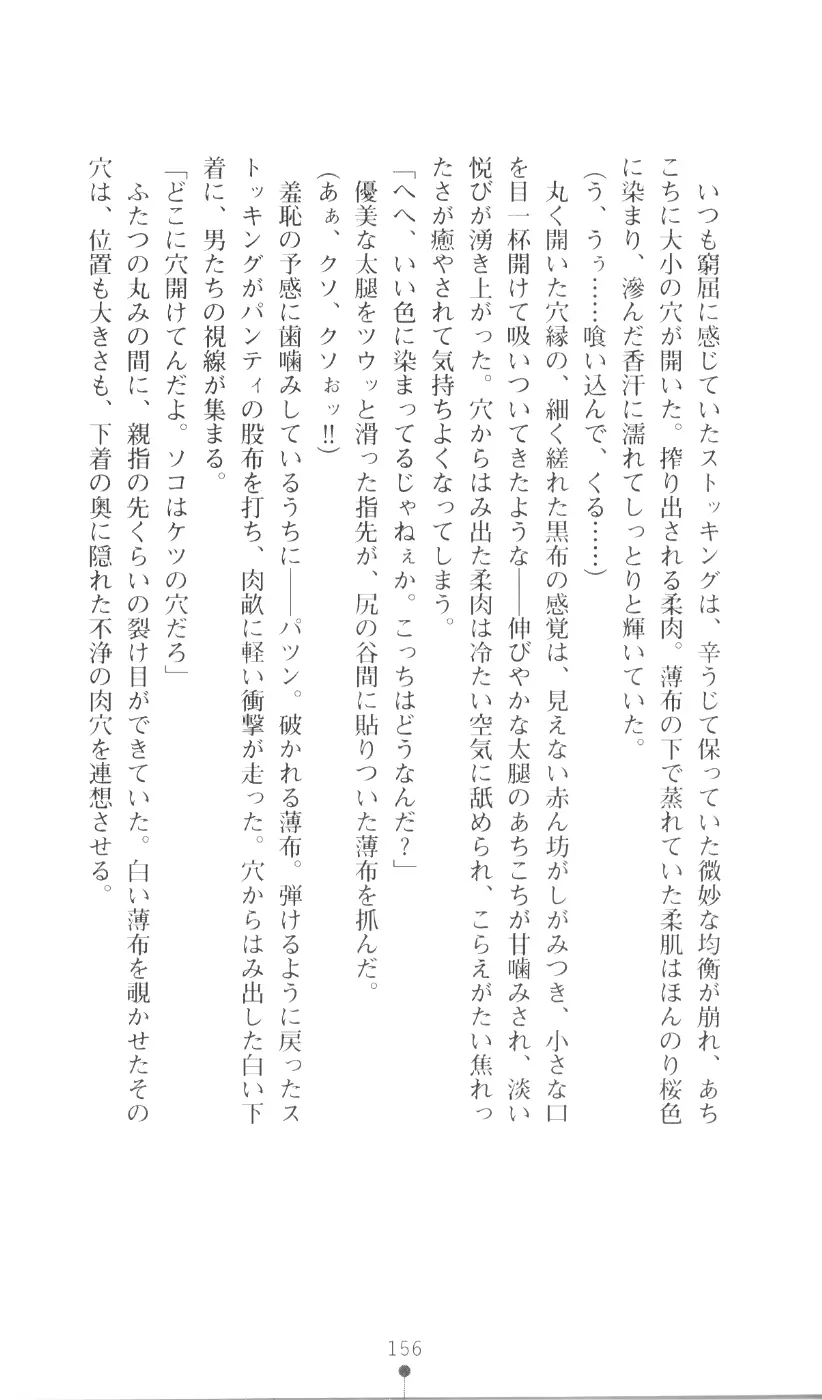 いつも窮屈に感じていたストッキングは、辛うじて保っていた微妙な均衡が崩れ、あち
こちに大小の穴が開いた。搾り出される柔肉。薄布の下で蒸れていた柔肌はほんのり桜色
に染まり、滲んだ香汗に濡れてしっとりと輝いていた。
(う、うぅ……喰い込んで、くる……)
丸く開いた穴縁の、細く縒れた黒布の感覚は、見えない赤ん坊がしがみつき、小さな口
を目一杯開けて吸いついてきたような――伸びやかな太腿のあちこちが甘噛みされ、淡い
悦びが湧き上がった。穴からはみ出た柔肉は冷たい空気に舐められ、こらえがたい焦れっ
たさが癒やされて気持ちよくなってしまう。
「へへ、いい色に染まってるじゃねぇか。こっちはどうなんだ?」
優美な太腿をツウッと滑った指先が、尻の谷間に貼りついた薄布を抓んだ。
(あぁ、クソ、クソぉッ!!)
羞恥の予感に歯噛みしているうちに――パツン。破かれる薄布。弾けるように戻ったス
トッキングがパンティの股布を打ち、肉畝に軽い衝撃が走った。穴からはみ出した白い下
着に、男たちの視線が集まる。
「どこに穴開けてんだよ。ソコはケツの穴だろ」
ふたつの丸みの間に、親指の先くらいの裂け目ができていた。白い薄布を覗かせたその
穴は、位置も大きさも、下着の奥に隠れた不浄の肉穴を連想させる。
156